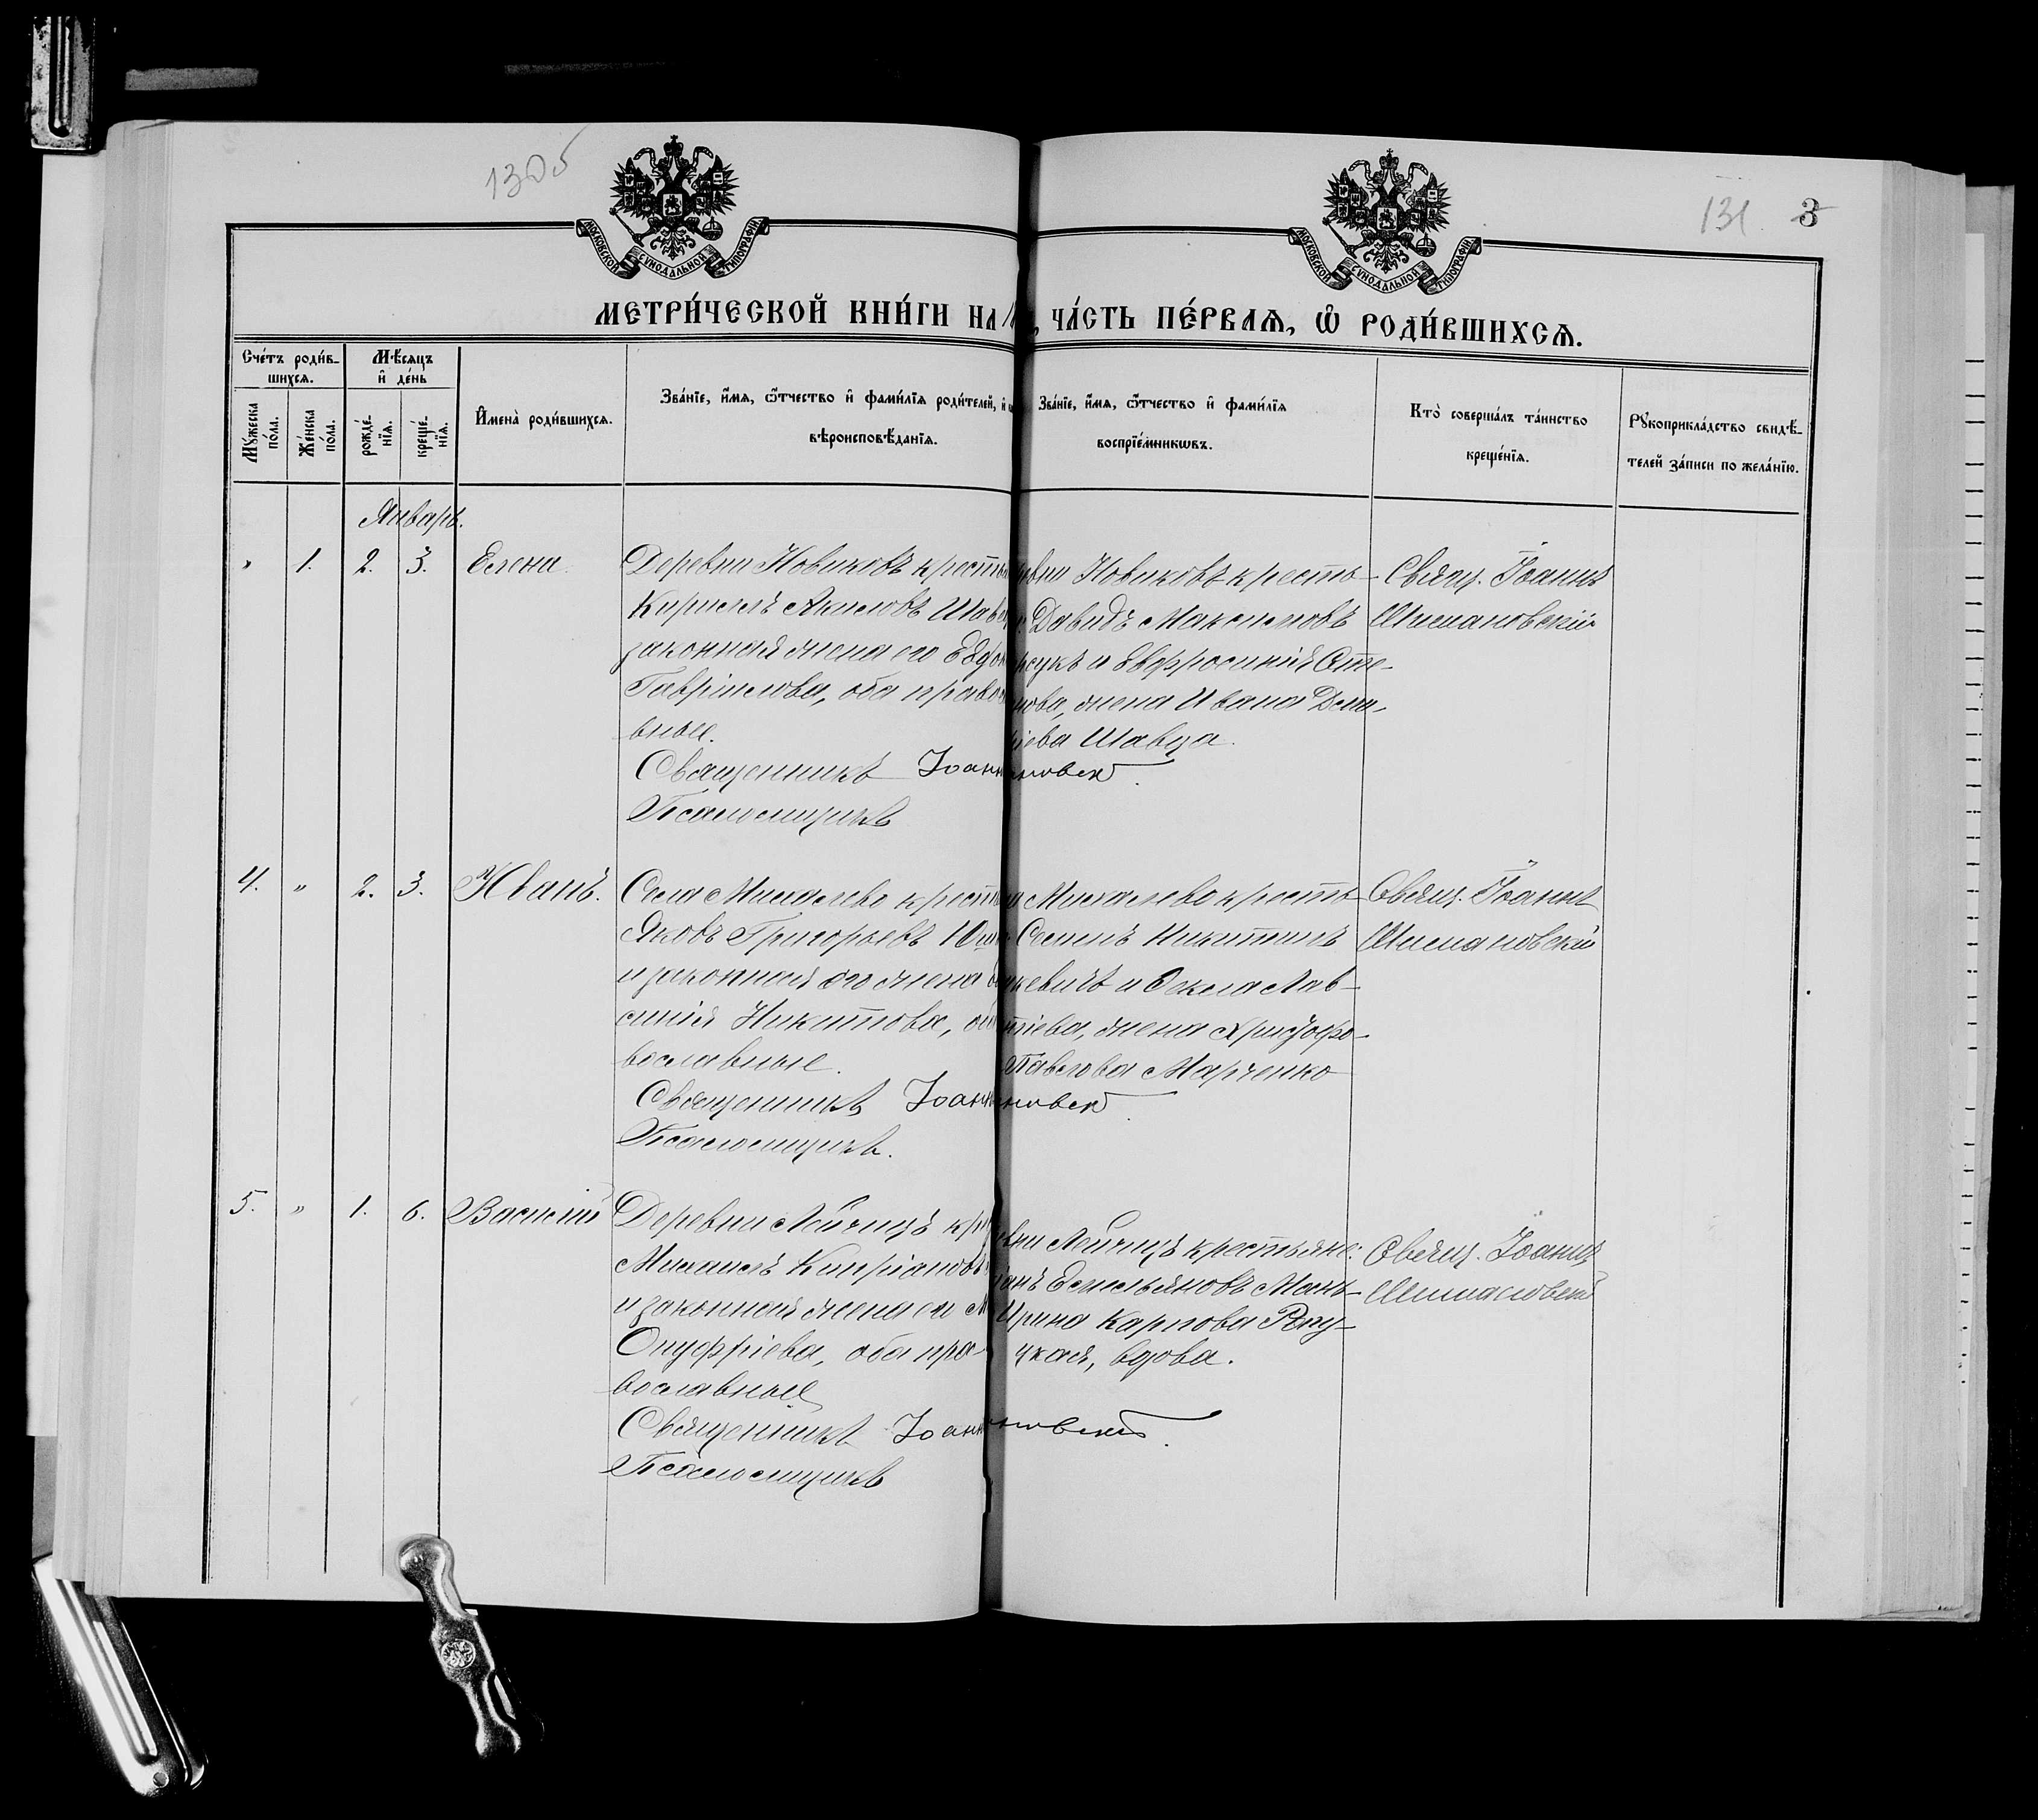 130об
131 3
МОСКОВСКОЙ СѴНОДАЛЬНОЙ ТИПОГРАФІИ
МОСКОВСКОЙ СѴНОДАЛЬНОЙ ТИПОГРАФІИ
МЕТРИ́ЧЕСКОЙ КНИ́ГИ НА
ЧА́СТЬ ПЕ́РВАѦ, Ѽ РОДИ́ВШИХСѦ.
Сче́тъ роди́в-
шихсѧ.
Мꙋжеска по́ла.
Же́нска по́ла.
Мѣ́сѧцъ
и҆ де́нь
рожде́-
нїѧ.
креще́-
нїѧ.
И҆мена̀ роди́вшихсѧ.
Зва́нїе, и҆́мѧ, ѻ҆́тчество и҆ фами́лїѧ роди́телей, и҆
вѣроисповѣ́данїѧ.
Зва́нїе, и҆́мѧ, ѻ҆́тчество и҆ фами́лїѧ
воспрїе́мникѡвъ.
Кто̀ соверша́лъ та́инство
креще́нїѧ.
Рꙋкоприкла́дство свидѣ́-
телей за́писи по жела́нїю.
Январь.
" 1. 2. 3. Елена.
Деревни Новиковъ кресть
Кириллъ Акиловъ Шав
законная жена его Евдо
Гавріилова, оба правос
вные.
Священникъ Іоанн
Псаломщикъ
евни Новиковъ кресть-
Давидъ Максимовъ
и Евфросинія Сте-
нова, жена Ивана Деми-
Шавца.
новск
Свящ. Іоаннъ
Шимановскій
4. " 2. 3. Иванъ.
Села Михалево кресть
Яковъ Григорьевъ Юш
и законная его жена
симія Никитова,
вославные.
Священникъ Іоанн
Псаломщикъ.
Михалево кресть-
Семенъ Никитинъ
кевичъ и Фекла Лав-
жена Христофо-
Павлова Марченко
новск
Свящ. Іоаннъ
Шимановскій
5. " 1. 6. Василій
Деревни Лойчицъ кр
Михаилъ Кипріановъ
и законная жена его М
Онуфріева, оба пра-
вославные
Священникъ Іоанн
Псаломщикъ
вни Лойчицъ крестьяне:
Емельяновъ Мань-
Ирина Карпова Репу-
цкая, вдова.
новскій
Свящ. Іоаннъ
Шимановскій